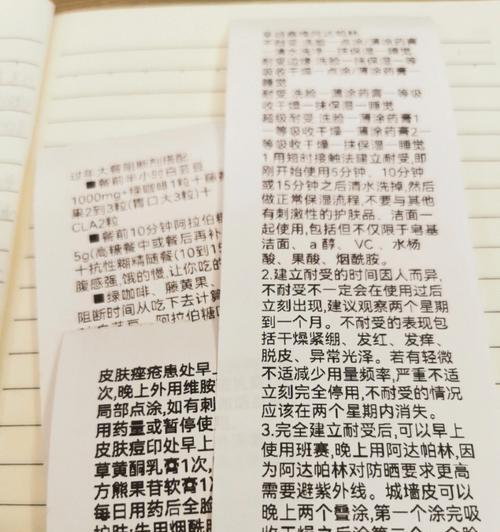 过年大餐阻断剂搭配
■餐前半小时白芸豆
1000mg+绿咖啡1粒+藤黄
果2到3粒(胃口大3粒)+
CLA2粒
■餐前10分钟阿拉伯糖
5g(高糖餐中或餐后再补
+抗性糊精随餐(10到15
腹感强,饿的慢,让你吃的
■绿咖啡、藤黄果、
阻断时间从吃下去计算
阿拉伯糖
皮肤痤疮患处早上
次,晚上外用维胺
局部点涂,如有刺
用药量或暂停使
皮肤痘印处早上
草黄酮乳膏1次,
方熊果苷软膏1次
每日用药后全脸
护肤:先用烟酰胺
班赛叠阿达帕林
不耐受:洗脸—点涂/薄涂药膏
—清水洗净—抹保湿—睡觉
耐受边缘:洗脸—抹保湿—等
吸收干燥—点涂/薄涂药膏—
睡觉
耐受:洗脸—薄涂药膏—等吸
收干燥—抹保湿—睡觉
超级耐受:洗脸—薄涂药膏1
—等吸收干燥—薄涂药膏2—
等吸收干燥—抹保湿—睡觉
1.用短时接触法建立耐受,即
刚开始使用5分钟、10分钟
或15分钟之后清水洗掉,然后
做正常保湿流程,不要与其他
有刺激性的护肤品、洁面一
起使用,包括但不仅限于皂基
洁面、a醇、VC、水杨
酸、果酸、烟酰胺。
2.建立耐受的时间因人而异,
不耐受不一定会在使用过后
立刻出现,建议观察两个星期
到一个月。不耐受的表现包
括干燥紧绷、发红、发痒、
脱皮、异常光泽。若有轻微
不适减少用量频率,严重不适
立刻完全停用,不耐受的情况
应该在两个星期内消失。
3.完全建立耐受后,可以早上
使用班赛,晚上用阿达帕林,因
为阿达帕林对防晒要求更高
需要避紫外线。城墙皮可以
晚上两个叠涂,第一个涂完吸
收干燥之后涂第二个